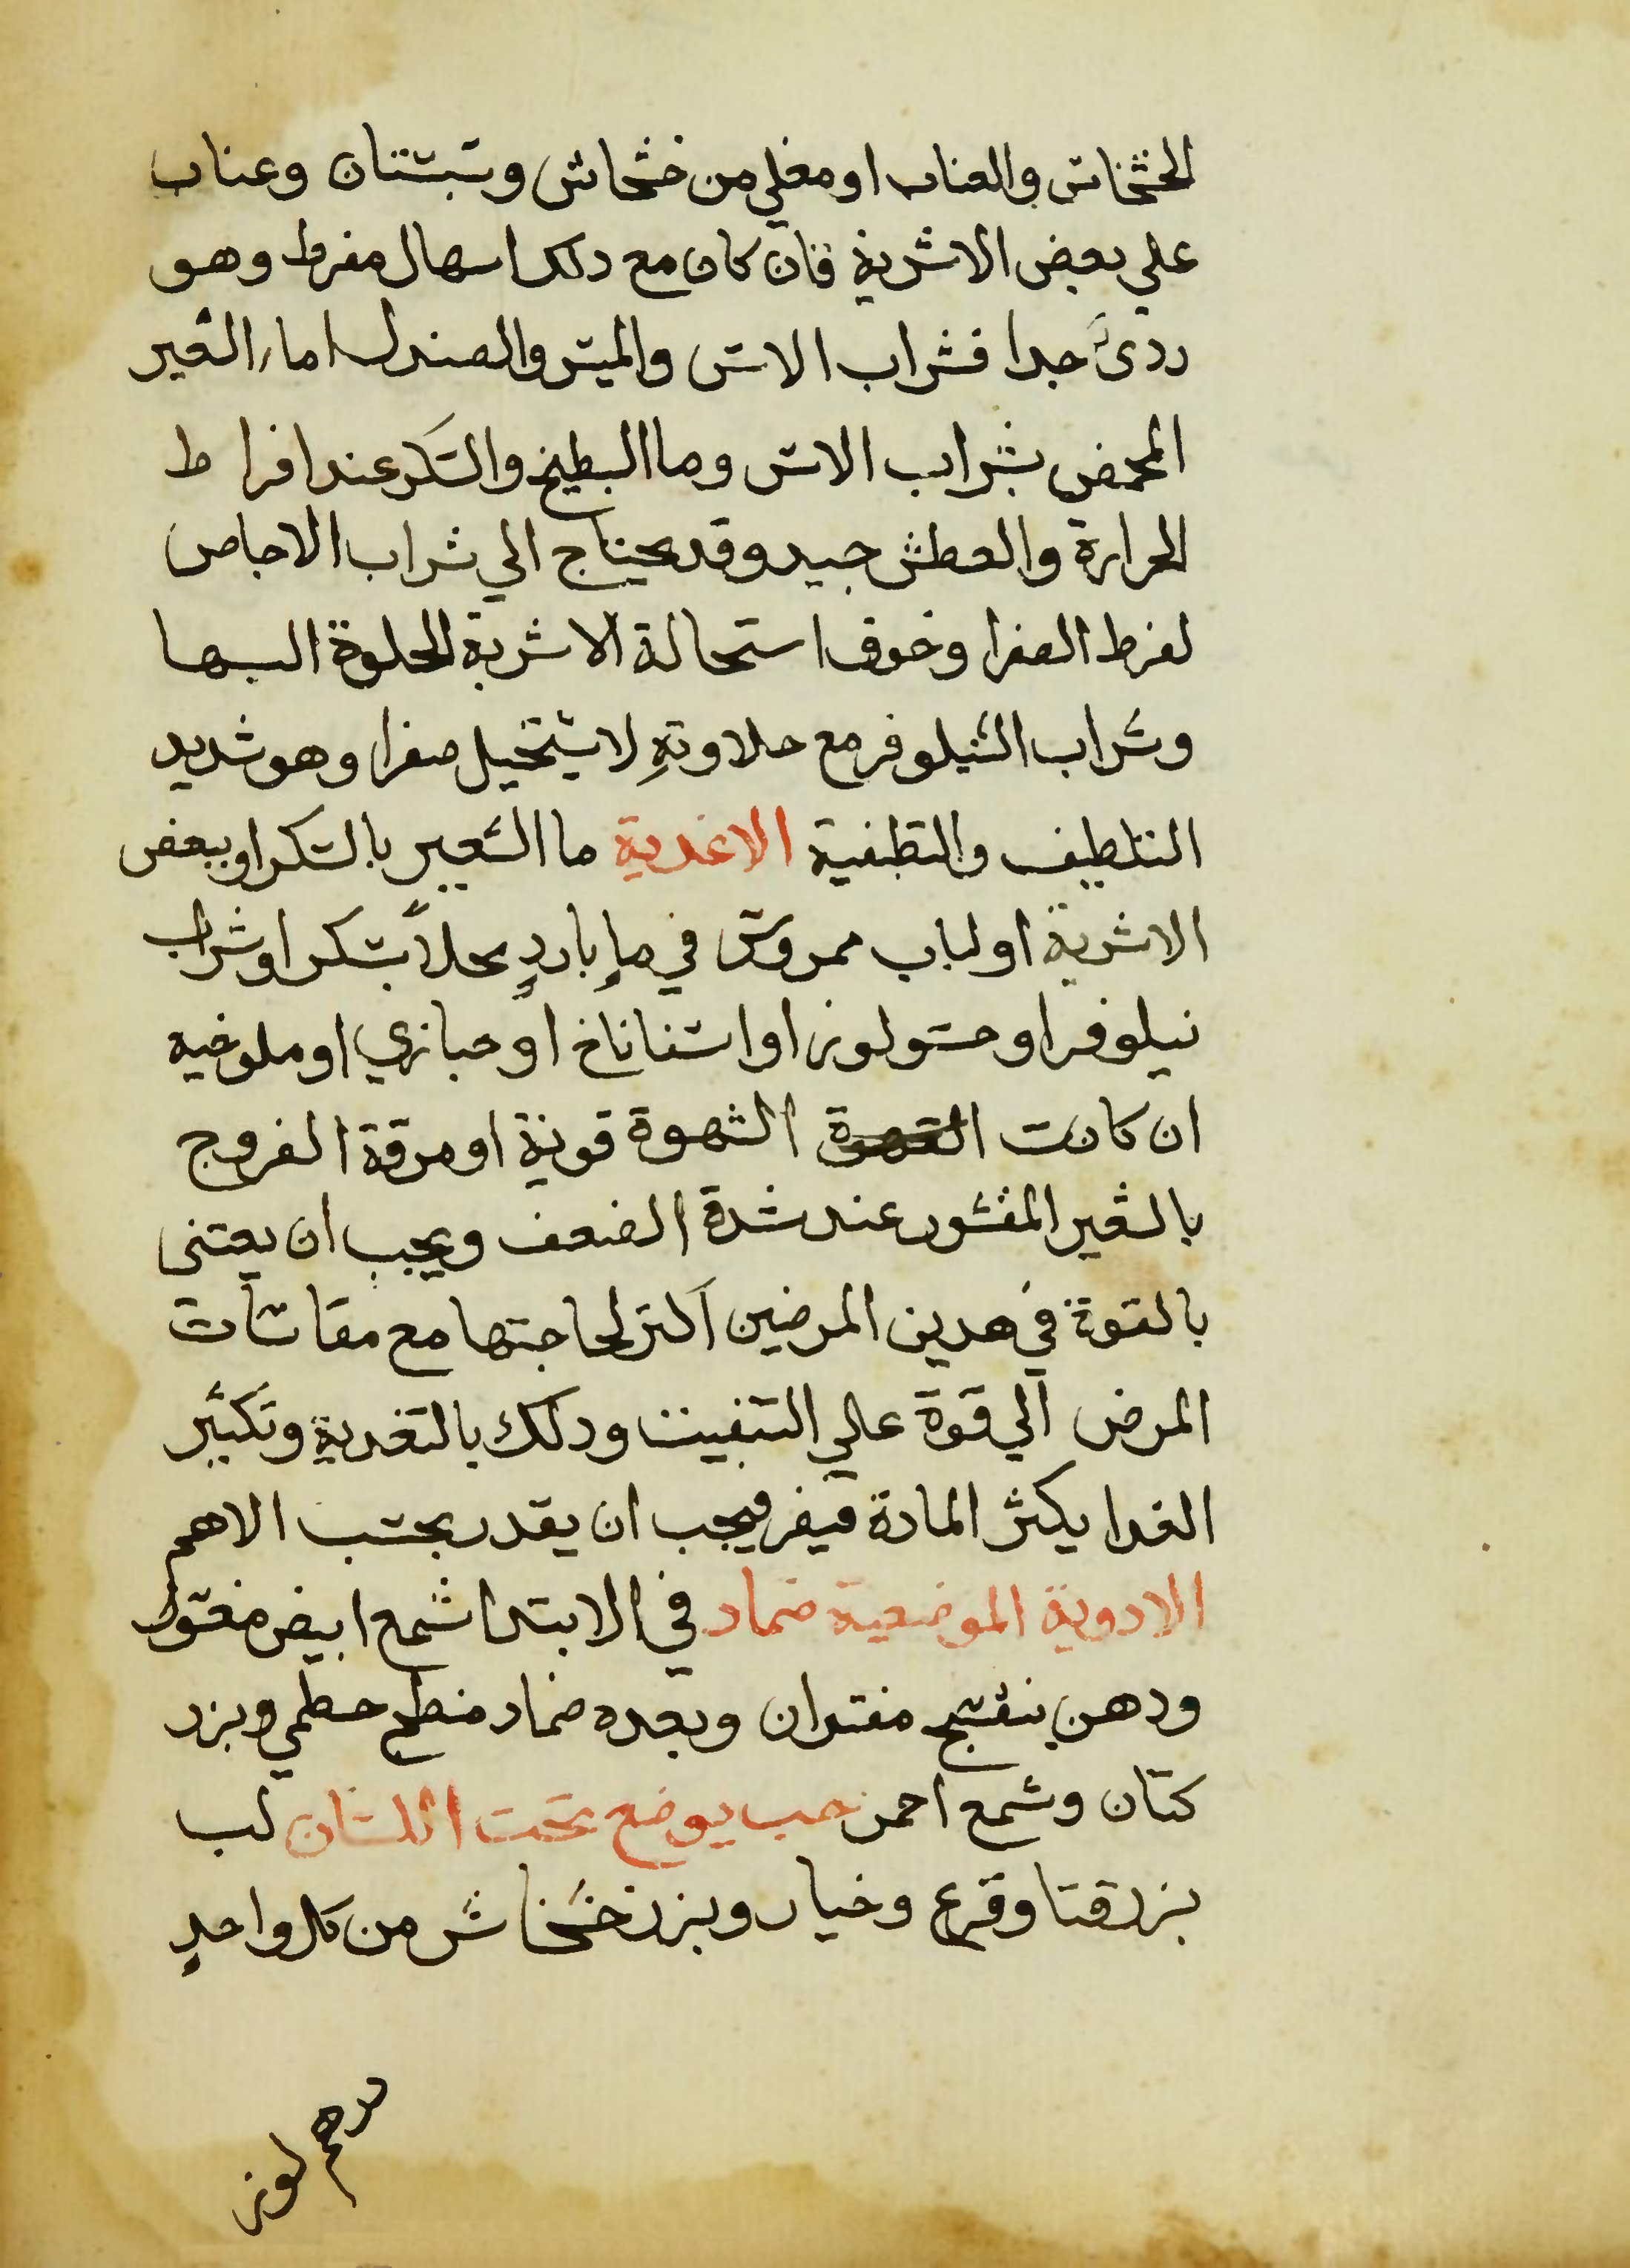 الخشخاش والعناب او مغلي من خشخاش وسبستان وعناب
علي بعض الاشربة فان كان مع دلك اسهال مفرط وهو
ردىً جدا فشراب الاس والميس والصندل اما الشعير
المحمض بشراب الاس وما البطيخ والسكر عند افراط
الحرارة والعطش جيد وقد يحتاج الي شراب الاجاص
لفرط الصفرا وخوف استحالة الاشربة الحلوة اليها
وشراب النيلوفر مع حلاوتهِ لا يستحيل صفرا وهو شديد
التلطيف والتطفية الاغدية ما الشعير بالسكر او ببعض
الاشربة او لباب ممروس في ماءٍ باردٍ محلاً بسكر او شراب
نيلوفر او حسو لوز او اسفاناخ او خبازي او ملوخيه
ان كانت القهوة الشهوة قوية او مرقة الفروج
بالشعير المقشور عند شدة الضعف ويجب ان يعتنى
بالقوة في هدين المرضين اكثر لحاجتها مع مقاسات
المرض الي قوة علي التنفيث ودلك بالتغدية وتكثير
الغدا يكثر المادة فيضر فيجب ان يقدر بحسب الاهم
الادوية الموضعية ضماد في الابتدا شمع ابيض مغسول
ودهن بنفسج مفتران وبعده ضماد منضج خطمي وبزر
كتان وشمع احمر حب يوضع تحت اللسان لب
بزر قثا وقرع وخيار وبزر خشخاش من كل واحدٍ
درهم لوز